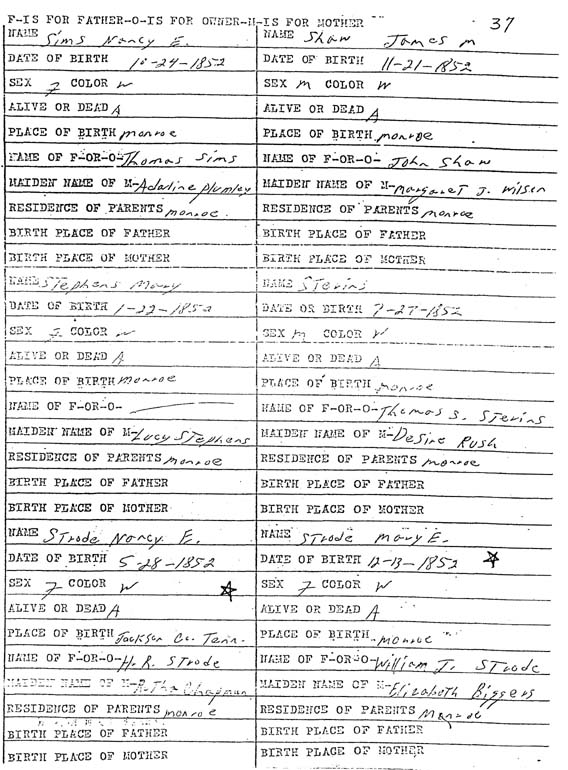 F-IS FOR FATHER-O-IS FOR OWNER-M-IS FOR MOTHER
37
NAME Sims Nancy E.
DATE OF BIRTH 10-24-1852
SEX F COLOR W
ALIVE OR DEAD A
PLACE OF BIRTH monroe
NAME OF F-OR-O-Thomas Sims
MAIDEN NAME OF M-Adaline Plumley
RESIDENCE OF PARENTS monroe.
BIRTH PLACE OF FATHER
BIRTH PLACE OF MOTHER
NAME Stephens Mary
DATE OF BIRTH 1-22-1852
SEX F COLOR W
ALIVE OR DEAD A
PLACE OF BIRTH monroe
NAME OF F-OR-O-
MAIDEN NAME OF M-Lucy Stephens
RESIDENCE OF PARENTS monroe
BIRTH PLACE OF FATHER
BIRTH PLACE OF MOTHER
NAME Strode Nancy E.
DATE OF BIRTH 5-28-1852
SEX F COLOR W
ALIVE OR DEAD A
PLACE OF BIRTH Jackson Co. Tenn.
NAME OF F-OR-O-H. R. Strode
MAIDEN NAME OF M- Chapman
RESIDENCE OF PARENTS monroe
BIRTH PLACE OF FATHER
BIRTH PLACE OF MOTHER
NAME Shaw James M
DATE OF BIRTH 11-21-1852
SEX M COLOR W
ALIVE OR DEAD A
PLACE OF BIRTH monroe
NAME OF F-OR-O- John Shaw
MAIDEN NAME OF M-Margaret J. Wilson
RESIDENCE OF PARENTS monroe
BIRTH PLACE OF FATHER
BIRTH PLACE OF MOTHER
NAME Stevins
DATE OR BIRTH 7-27-1852
SEX M COLOR W
ALIVE OR DEAD A
PLACE OF BIRTH monroe
NAME OF F-OR-O-Thomas S. Stevins
MAIDEN NAME OF M-Desire Rush
RESIDENCE OF PARENTS monroe
BIRTH PLACE OF FATHER
BIRTH PLACE OF MOTHER
NAME Strode Mary E.
DATE OF BIRTH 12-13-1852
SEX F COLOR W
ALIVE OR DEAD A
PLACE OF BIRTH monroe
NAME OF F-OR-O-William J. Strode
MAIDEN NAME OF M-Elizabeth Biggers
RESIDENCE OF PARENTS Monroe
BIRTH PLACE OF FATHER
BIRTH PLACE OF MOTHER